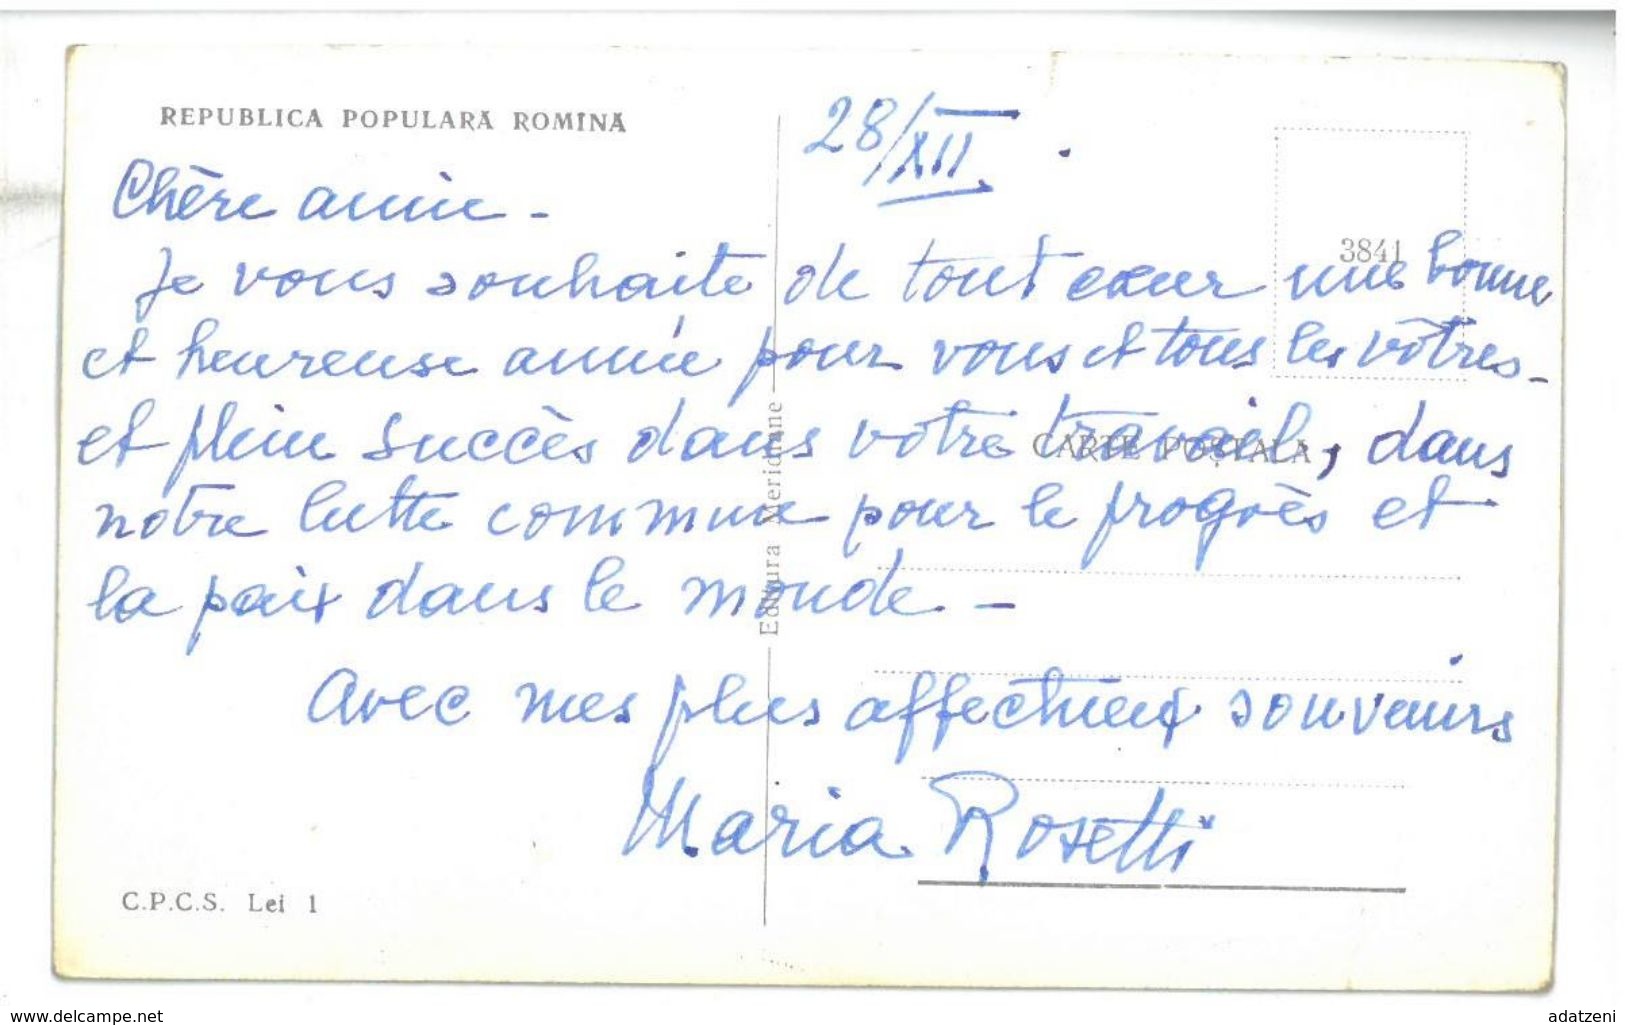 REPUBLICA POPULARĂ ROMÎNĂ
28/XII.
Chère amie -
Je vous souhaite de tout cœur une bonne
et heureuse année pour vous et tous les vôtres -
et plein succès dans votre travail, dans
notre lutte commune pour le progrès et
la paix dans le monde. -
Avec mes plus affectueux souvenirs
Maria Rosetti
3841
CARTE POȘTALĂ
Editura Meridiane
C.P.C.S. Lei 1
www.delcampe.net
adatzeni